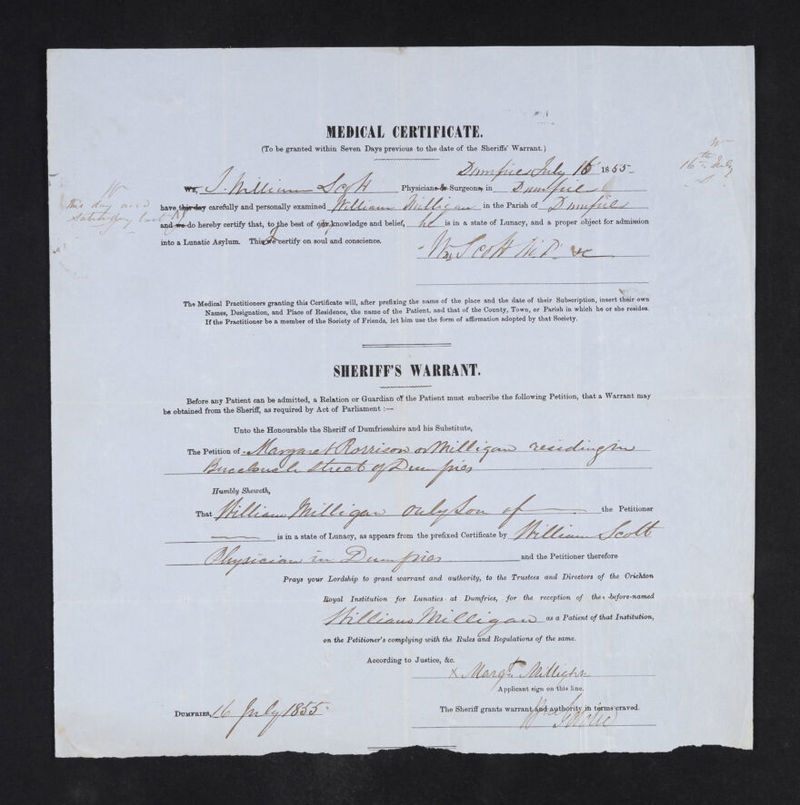 MEDICAL CERTIFICATE.
(To be granted within Seven Days previous to the date of the Sheriffs' Warrant.)
Dumfries July 16 1855
16th July
We, I William Scott Physicians & Surgeons, in Dumfries
this day and
Saturday last
have this day carefully and personally examined William Milligan in the Parish of Dumfries
and we do hereby certify that, to the best of our knowledge and belief, he is in a state of Lunacy, and a proper object for admission
into a Lunatic Asylum. This we I certify on soul and conscience.
Wm Scott M.D. &c
The Medical Practitioners granting this Certificate will, after prefixing the name of the place and the date of their Subscription, insert their own
Names, Designation, and Place of Residence, the name of the Patient, and that of the County, Town, or Parish in which he or she resides.
If the Practitioner be a member of the Society of Friends, let him use the form of affirmation adopted by that Society.
SHERIFF'S WARRANT.
Before any Patient can be admitted, a Relation or Guardian of the Patient must subscribe the following Petition, that a Warrant may
be obtained from the Sheriff, as required by Act of Parliament :—
Unto the Honourable the Sheriff of Dumfriesshire and his Substitute,
The Petition of Margaret Rorrison or Milligan residing in
Buccleuch Street of Dumfries
Humbly Sheweth,
That William Milligan only Son of the Petitioner
is in a state of Lunacy, as appears from the prefixed Certificate by William Scott
Physician in Dumfries and the Petitioner therefore
Prays your Lordship to grant warrant and authority, to the Trustees and Directors of the Crichton
Royal Institution for Lunatics at Dumfries, for the reception of the before-named
William Milligan as a Patient of that Institution,
on the Petitioner's complying with the Rules and Regulations of the same.
According to Justice, &c.
x Margt Milligan
Applicant sign on this line.
DUMFRIES, 16 July 1855.
The Sheriff grants warrant and authority in terms craved.